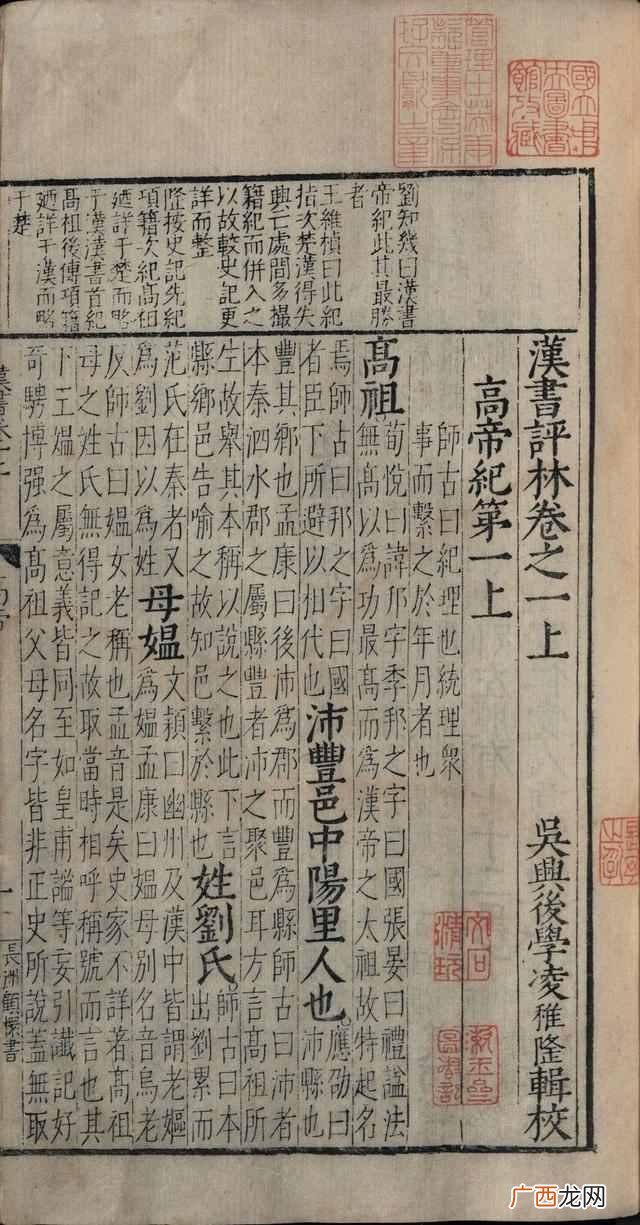 漢書評林卷之一上
吳興後學凌稚隆輯校
高帝紀第一上
師古曰紀理也統理眾
事而繫之於年月者也
高祖
荀悅曰諱邦字季邦之字曰國張晏曰禮謚法
無高以為功最高而為漢帝之太祖故特起名
焉師古曰邦之字曰國
者臣下所避以相代也
沛豐邑中陽里人也
應劭曰
沛縣也
豐其鄉也孟康曰後沛為郡而豐為縣師古曰沛者
本秦泗水郡之屬縣豐者沛之聚邑耳方言高祖所
生故舉其本稱以說之也此下言
縣鄉邑告喻之故知邑繫於縣也
姓劉氏
師古曰本
出劉累而
范氏在秦者又
為劉因以為姓
母媼
文穎曰幽州及漢中皆謂老嫗
為媼孟康曰媼母別名音烏老
反師古曰媼女老稱也孟音是矣史家不詳著高祖
母之姓氏無得記之故取當時相呼稱號而言也其
下王媼之屬意義皆同至如皇甫謐等妄引讖記好
奇騁博強為高祖父母名字皆非正史所說蓋無取
劉知幾曰漢書
帝紀此其最勝
者
王維楨曰此紀
指次楚漢得失
興亡處間多撮
籍紀而併入之
以故較史記更
詳而整
隆按史記先紀
項籍次紀高祖
廼詳于楚而略
于漢漢書首紀
高祖後傳項籍
廼詳于漢而略
于楚
長洲顧櫰書
國立中央圖書館收藏
广西龙网